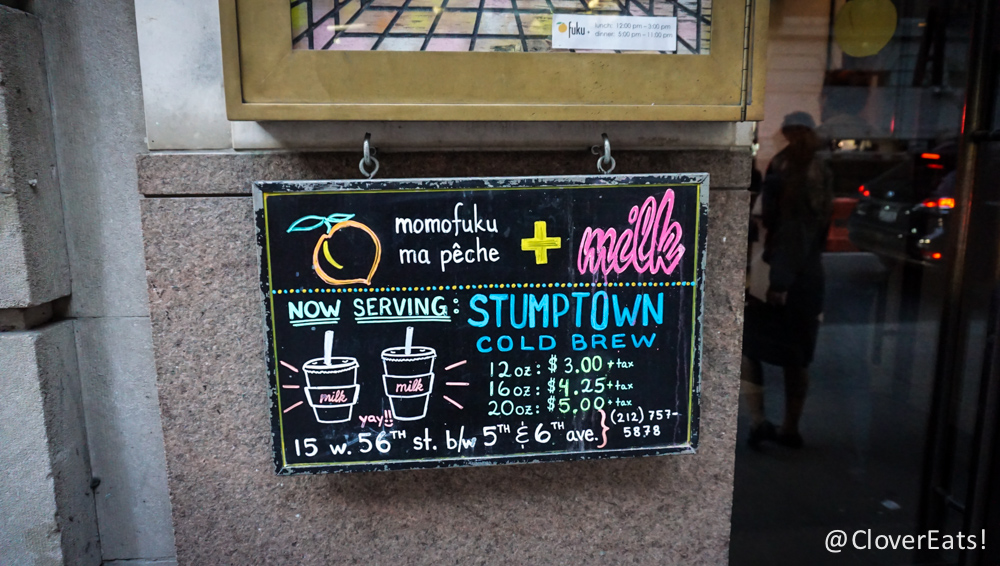 fuku+ lunch: 12:00 pm - 3:00 pm
dinner: 5:00 pm - 11:00 pm
momofuku
ma pêche + milk
NOW SERVING: STUMPTOWN
COLD BREW
12oz: $3.00 +tax
16oz: $4.25 +tax
20oz: $5.00 +tax
milk milk
yay!!
15 w. 56TH st. b/w 5TH & 6TH ave. } (212) 757-
5878
@CloverEats!